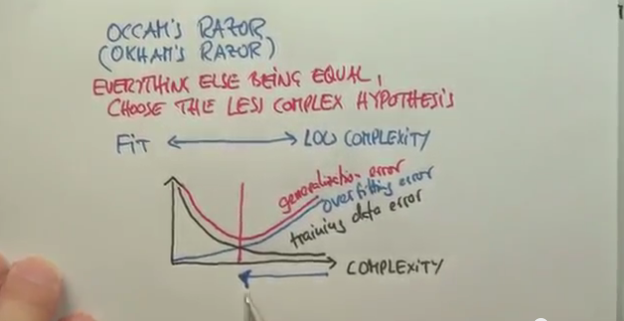 OCCAM'S RAZOR
(OKHAM'S RAZOR)
EVERYTHING ELSE BEING EQUAL,
CHOOSE THE LESS COMPLEX HYPOTHESIS
FIT ⟷ LOW COMPLEXITY
generalization error
overfitting error
training data error
COMPLEXITY